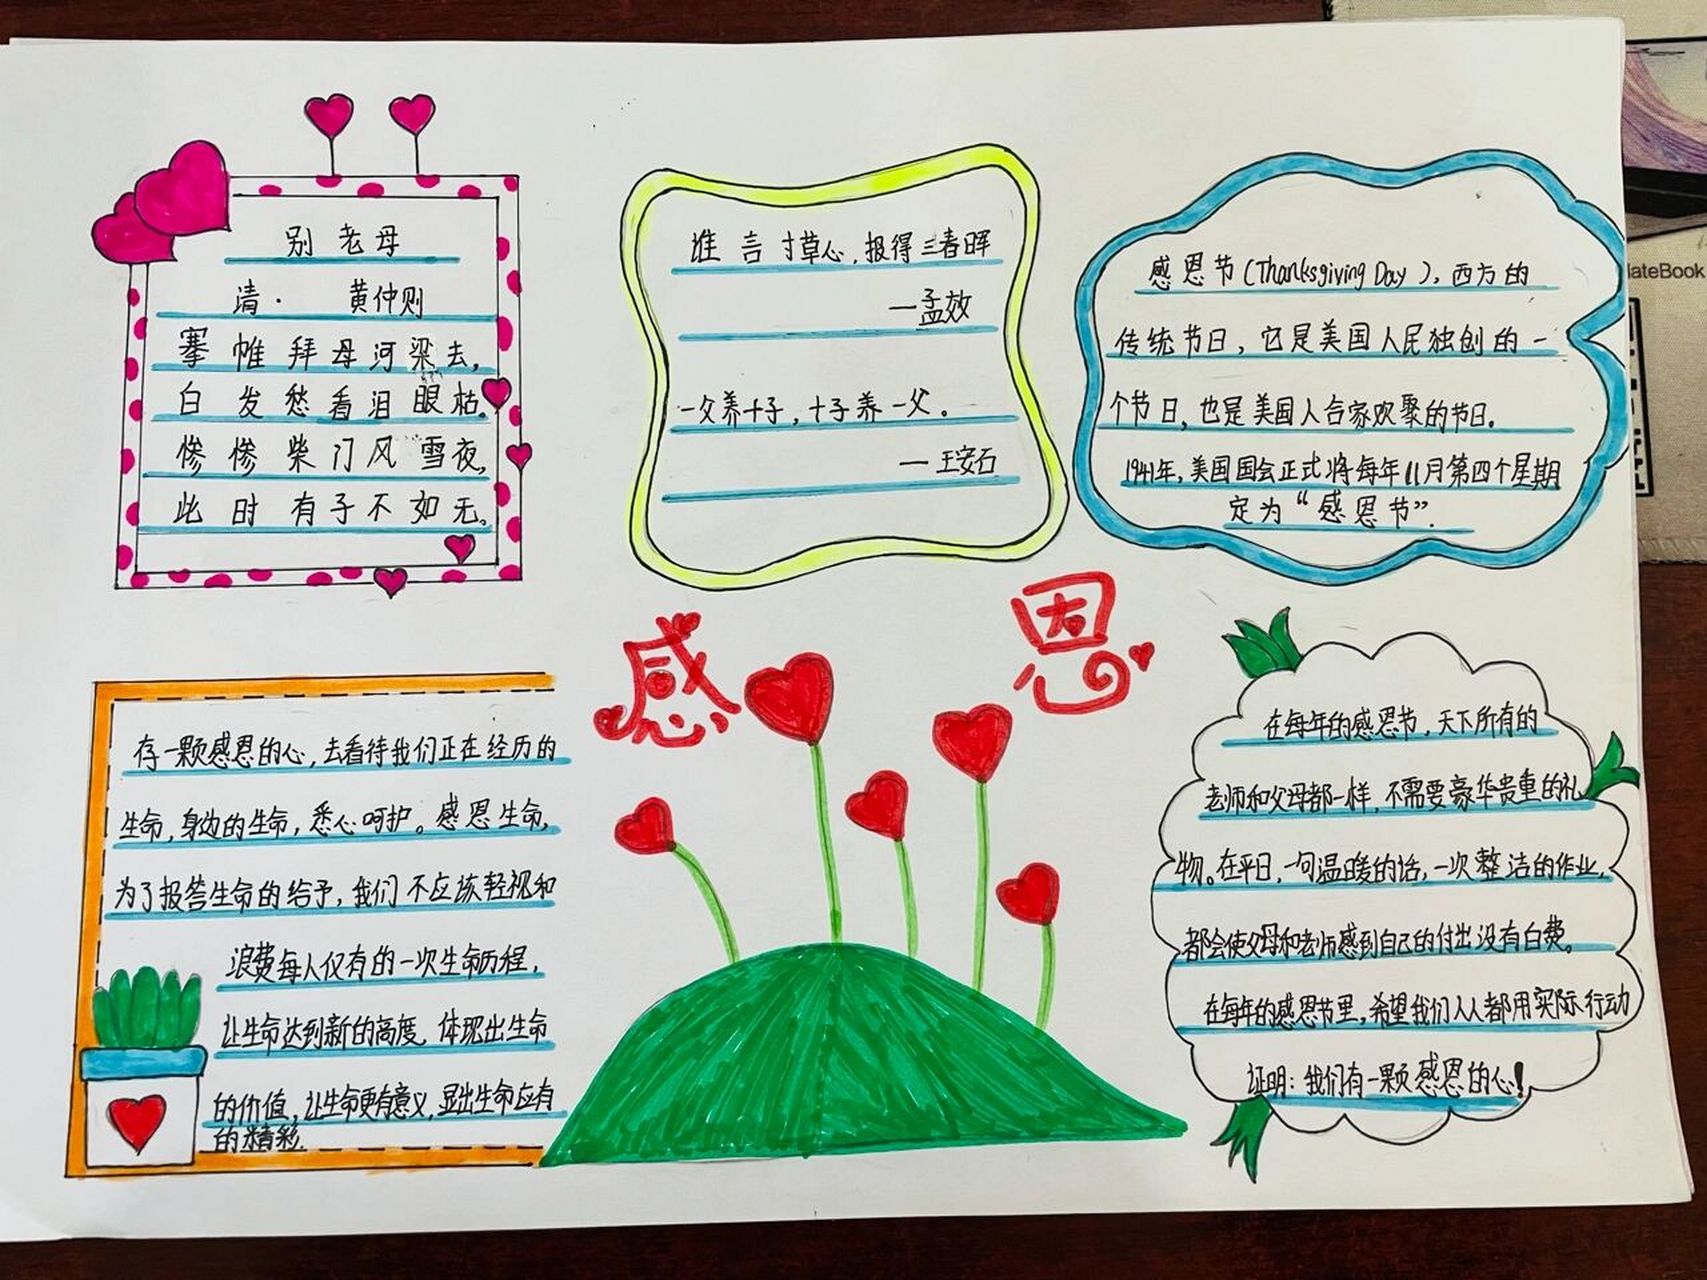 别老母
清·　黄仲则
搴帷拜母河梁去，
白发愁看泪眼枯。
惨惨柴门风雪夜，
此时有子不如无。
谁言寸草心，报得三春晖
—孟效
一父养十子，十子养一父。
—王安石
感恩节（Thanksgiving Day），西方的
传统节日，它是美国人民独创的一
个节日，也是美国人合家欢聚的节日。
1941年，美国国会正式将每年11月第四个星期
定为“感恩节”.
感恩
存一颗感恩的心，去看待我们正在经历的
生命，身边的生命，悉心呵护。感恩生命，
为了报答生命的给予，我们不应该轻视和
浪费每人仅有的一次生命历程，
让生命达到新的高度，体现出生命
的价值，让生命更有意义，显出生命应有
的精彩.
在每年的感恩节，天下所有的
老师和父母都一样，不需要豪华贵重的礼
物。在平日，一句温暖的话，一次整洁的作业，
都会使父母和老师感到自己的付出没有白费。
在每年的感恩节里，希望我们人人都用实际行动
证明：我们有一颗感恩的心！
ateBook